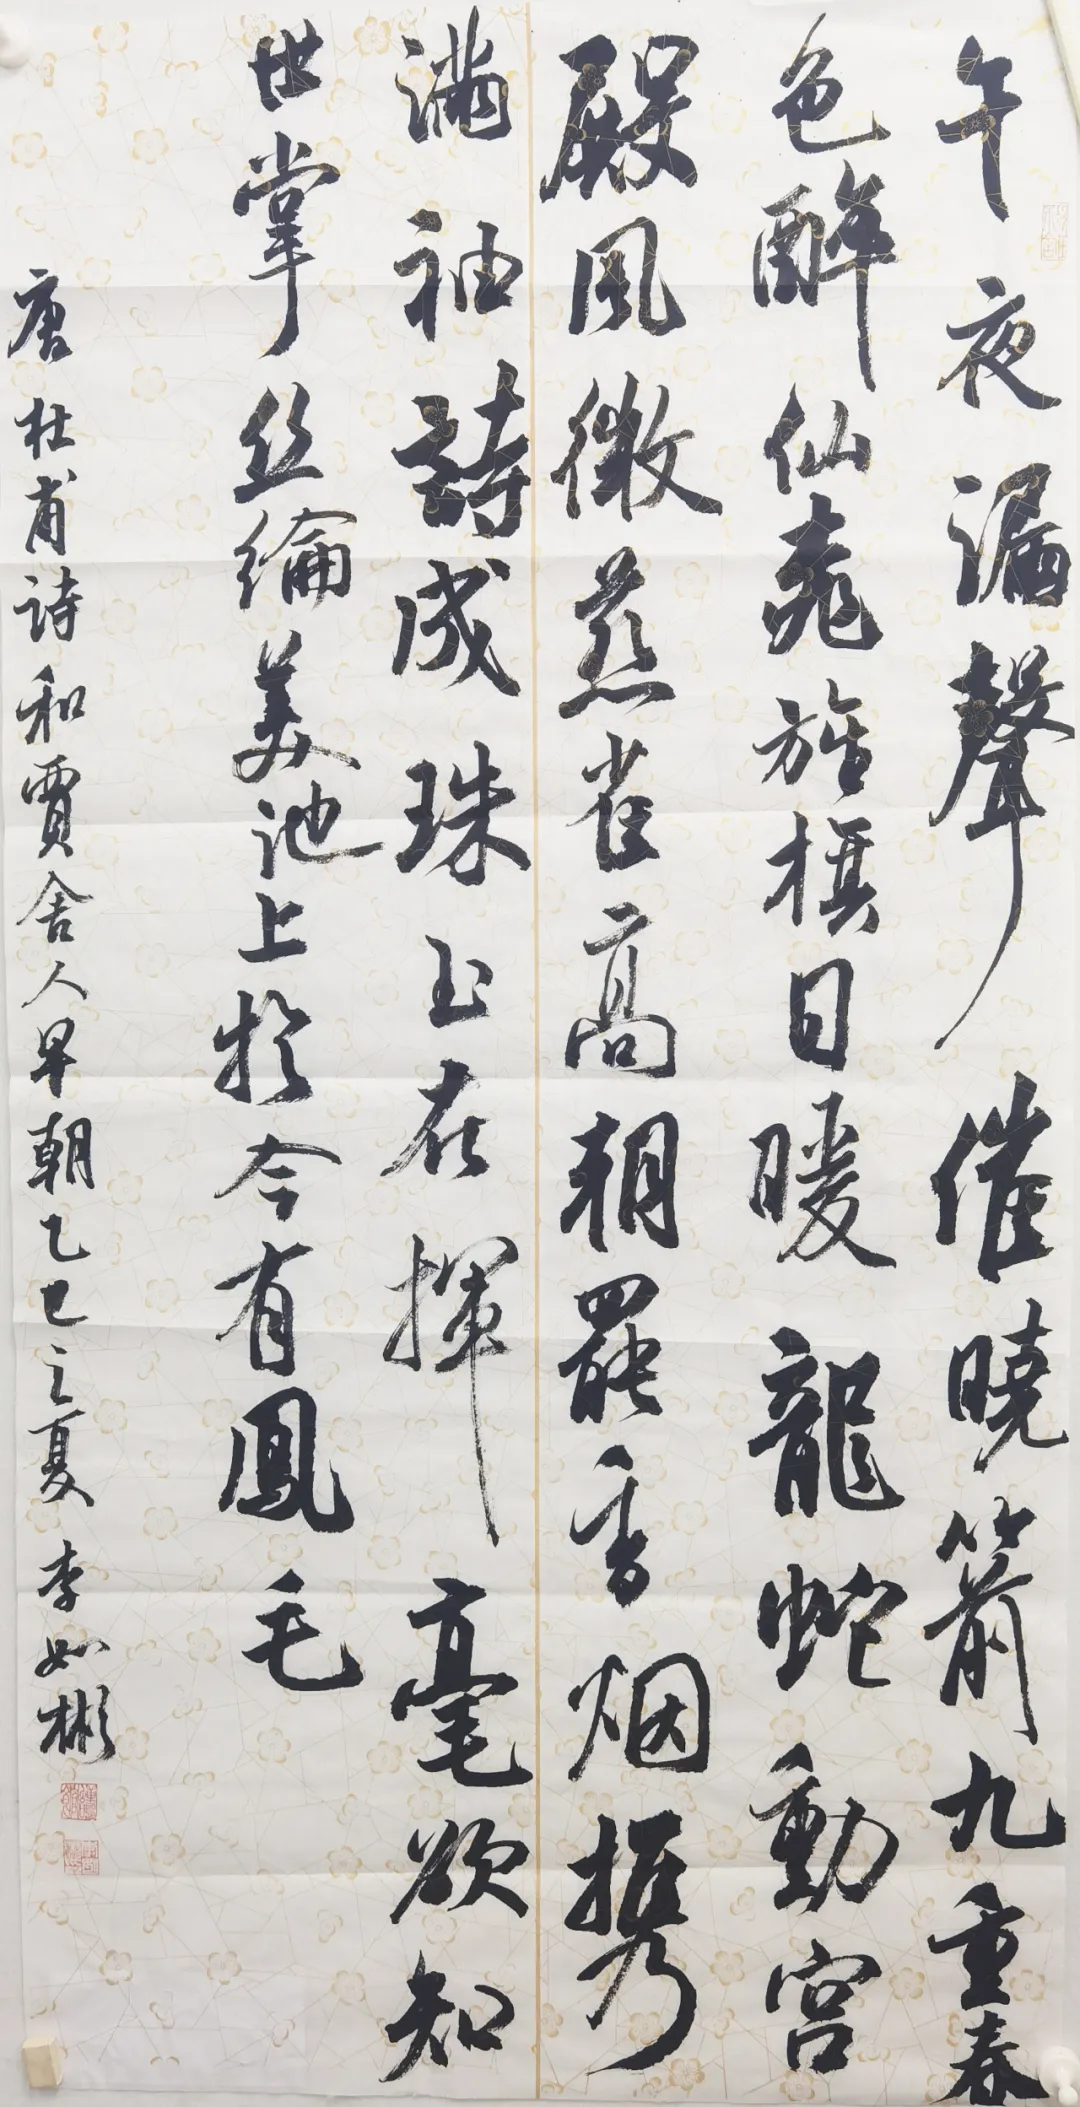 午夜漏聲催曉箭九重春
色醉仙桃旌旗日暖龍蛇動宮
殿風微燕雀高朝罷香烟携
滿袖詩成珠玉在揮毫欲知
世掌丝綸美池上於今有鳳毛
唐杜甫詩和賈舍人早朝乙巳之夏李如彬